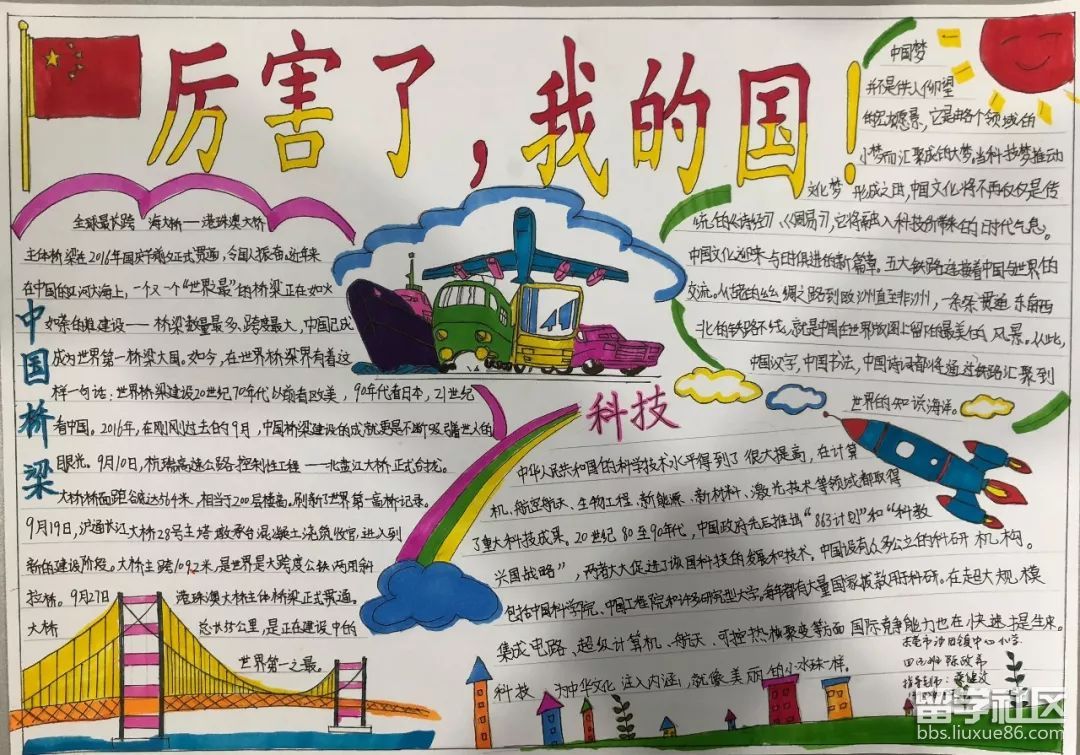 厉害了，我的国！
中国桥梁
全球最长跨海大桥——港珠澳大桥
主体桥梁在2016年国庆节前夕正式贯通，令国人振奋。近年来
在中国的江河大海上，一个又一个“世界之最”的桥梁正在如火
如荼的推建设——桥梁数量最多、跨度最大，中国已成
成为世界第一桥梁大国。如今，在世界桥梁界有着这
样一句话：世界桥梁建设20世纪70年代以前看欧美，90年代看日本，21世纪
看中国。2016年，在刚刚过去的9月，中国桥梁建设的成就更是不断吸引着世人的
眼光。9月10日，杭瑞高速公路控制性工程——北盘江大桥正式合拢。
大桥桥面距谷底达564米，相当于200层楼高。刷新了世界第一高桥记录。
9月19日，沪通长江大桥28号主塔墩承台混凝土浇筑收官，进入到
新的建设阶段。大桥主跨1092米，是世界最大跨度公铁两用斜
拉桥。9月27日 港珠澳大桥主体桥梁正式贯通。
大桥 总长55公里，是正在建设中的
世界第一之最。
中国梦
并不是供人仰望
的宏愿景，它是由各个领域的
小梦而汇聚成的大梦。当科技梦推动
文化梦形成之时，中国文化将不再仅仅是传
统的《诗经》《周易》，它将融入科技所带来的时代气息。
中国文化迎来与时俱进的新篇章。五大铁路连接着中国与世界的
交流。从古路的丝绸之路到欧洲直至非洲，一条条贯通东南西
北的铁路不线，就是中国在世界版图上留下的最美的风景。从此，
中国汉字，中国书法，中国诗词都将通过铁路汇聚到
世界的知识海洋。
科技
中华人民共和国的科学技术水平得到了很大提高，在计算
机、航空航天、生物工程、新能源、新材料、激光技术等领域都取得
了重大科技成果。20世纪80至90年代，中国政府先后推出“863计划”和“科教
兴国战略”，两者大大促进了该国科技的发展和技术。中国设有众多公立的科研机构。
包括中国科学院、中国工程院和许多研究型大学。每年都有大量国家拨款用于科研。在超大规模
集成电路、超级计算机、航天、可控热核聚变等方面国际竞争能力也在快速提生来。
科技为中华文化注入内涵，就像美丽的小水珠一样。
东莞市沙田镇中心小学
指导老师：
留学社区
bbs.liuxue86.com